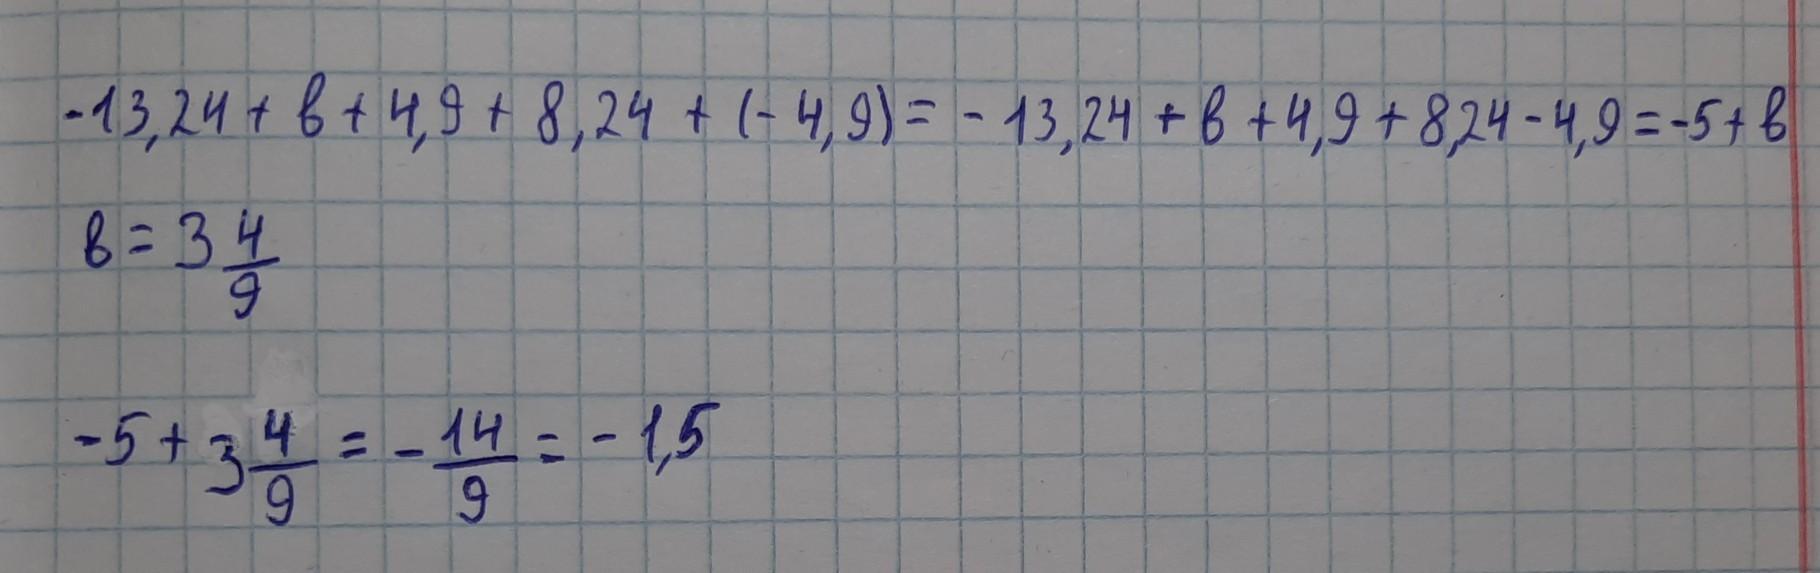 -13,24 + в + 4,9 + 8,24 + (-4,9) = -13,24 + в + 4,9 + 8,24 - 4,9 = -5 + в
в = 3 4/9
-5 + 3 4/9 = - 14/9 = -1,5